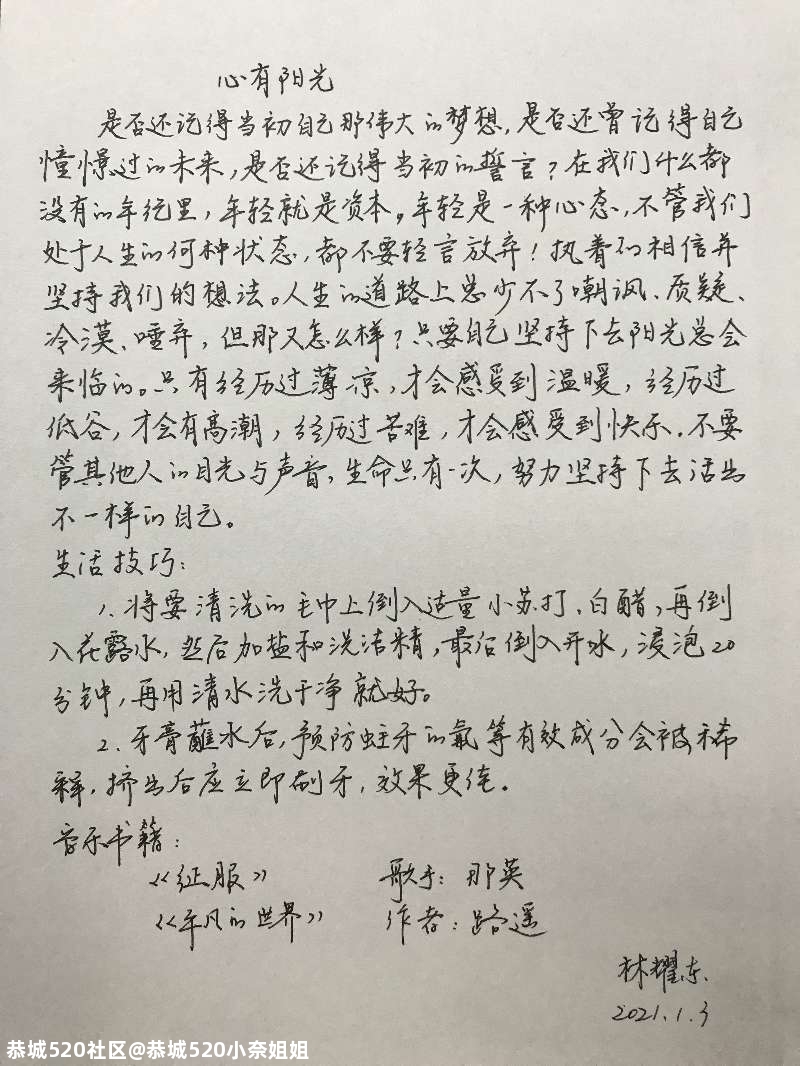 心有阳光
是否还记得当初自己那伟大的梦想,是否还曾记得自己
憧憬过的未来,是否还记得当初的誓言?在我们什么都
没有的年纪里,年轻就是资本。年轻是一种心态,不管我们
处于人生的何种状态,都不要轻言放弃!执着的相信并
坚持我们的想法。人生的道路上总少不了嘲讽、质疑、
冷漠、唾弃,但那又怎么样?只要自己坚持下去阳光总会
来临的。只有经历过薄凉,才会感受到温暖,经历过
低谷,才会有高潮,经历过苦难,才会感受到快乐.不要
管其他人的目光与声音,生命只有一次,努力坚持下去活出
不一样的自己。
生活技巧:
1.将要清洗的毛巾上倒入适量小苏打、白醋,再倒
入花露水,然后加盐和洗洁精,最后倒入开水,浸泡20
分钟,再用清水洗干净就好。
2.牙膏蘸水后,预防蛀牙的氟等有效成分会被稀
释,挤出后应立即刷牙,效果更佳。
音乐书籍:
《征服》 歌手:那英
《平凡的世界》 作者:路遥
林耀东
2021.1.3
恭城520社区@恭城520小奈姐姐